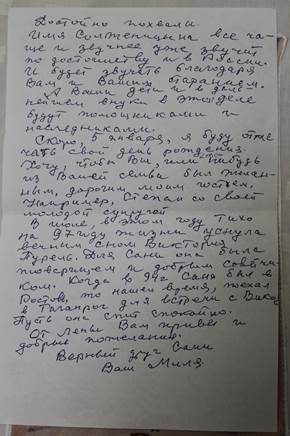 Достойно похвалы
Имя Солженицына все ча-
ще и звучнее уже звучит
по достоинству и в России.
И будет звучать благодаря
Вам и Вашим стараниям.
А Ваши дети и в даль-
нейшем внуки в этом деле
будут помощниками и
наследниками.
Скоро, 5 января, я буду отме
чать свой день рождения.
Хочу, чтобы Вы, или кто-нибудь
из Вашей семьи был желан-
ным, дорогим моим гостем.
Например, Степан со своей
молодой супругой
В июле, в этом году тихо
на 89 году жизни уснула
вечным сном Виктория
Пурель. Для Сани она была
поверящем и добрым советчи
ком. Когда в Саня был в
Ростове, то нашел время, поехал
в Таганрог для встречи с Викой
Пусть она спит спокойно.
От Лены Вам привет и
добрые пожелания.
Верный друг Сани
Ваш Миля